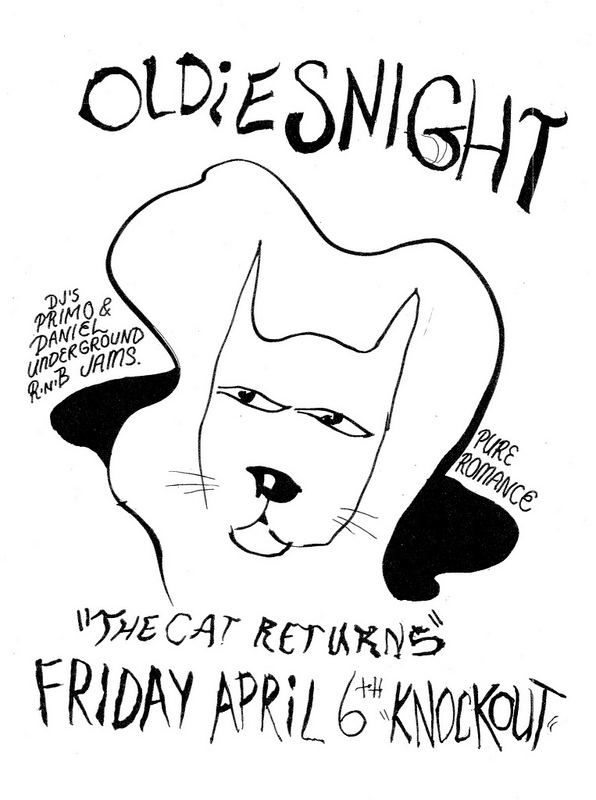 OLDiES NIGHT
DJ'S
PRIMO &
DANIEL
UNDERGROUND
R.n.B JAMS.
PURE
ROMANCE
"THE CAT RETURNS"
FRIDAY APRiL 6TH "KNOCKOUT"